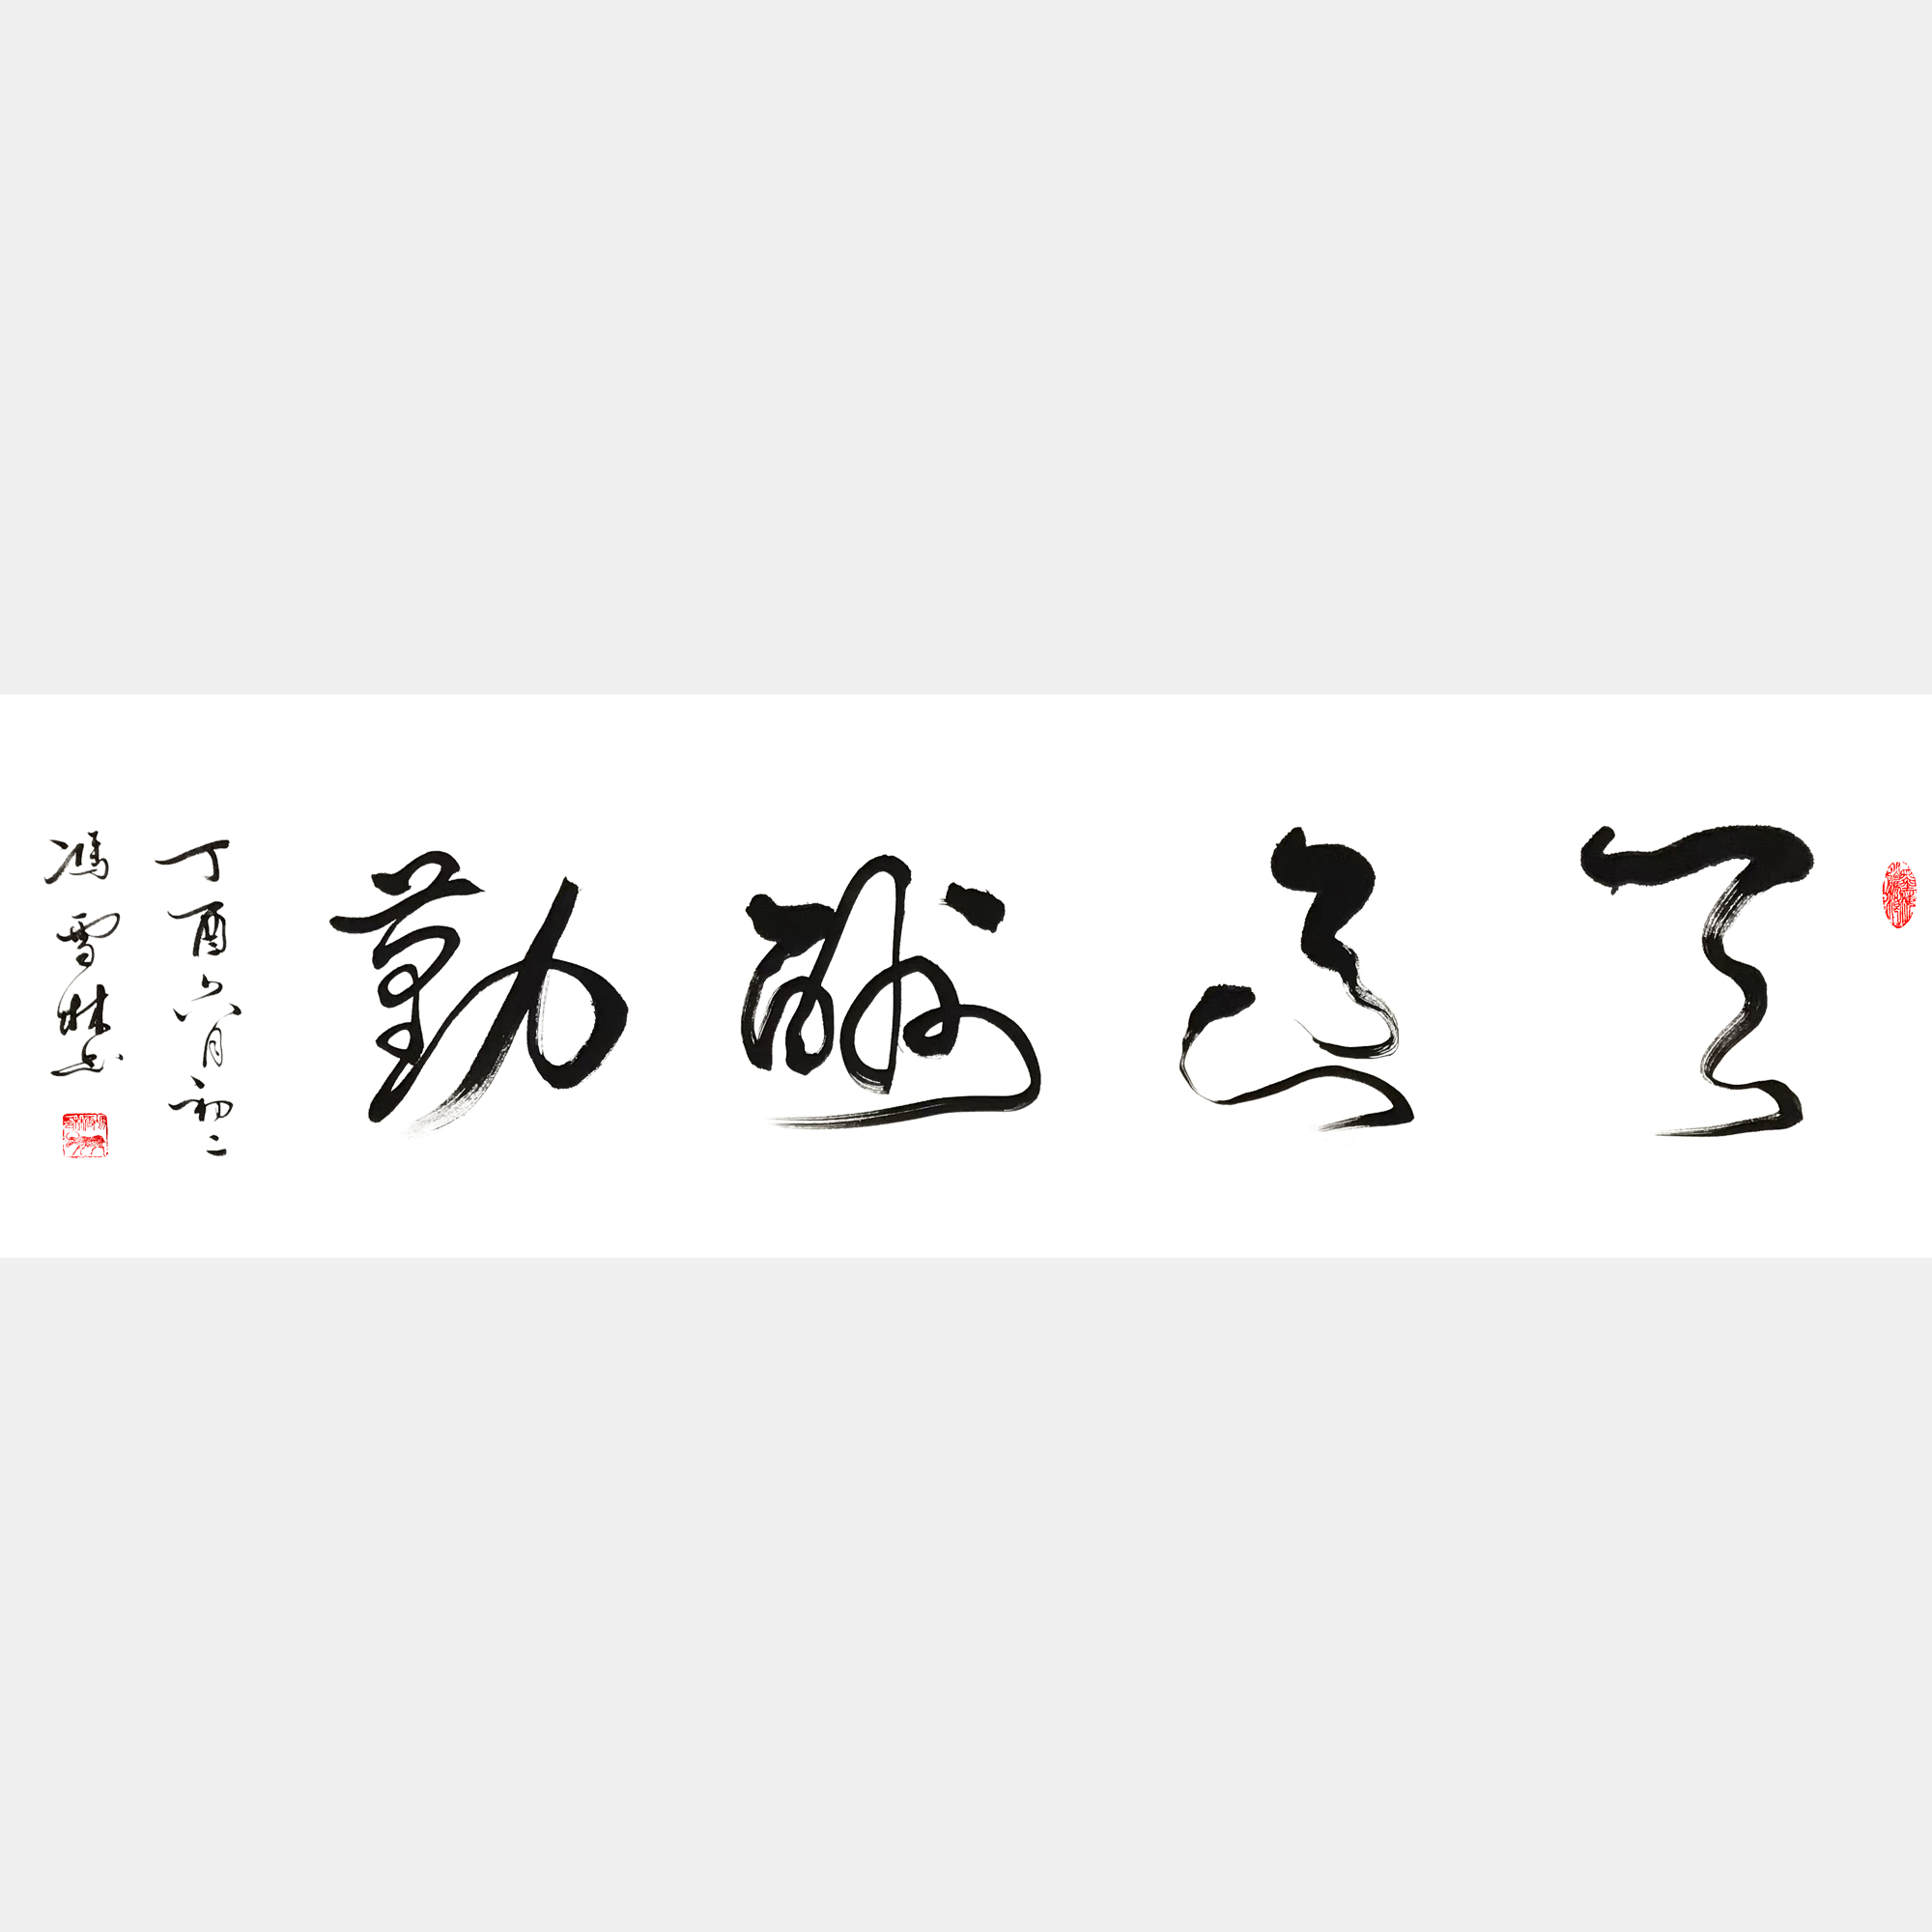 天道酬勤
丁酉六月初二
馮雪林書